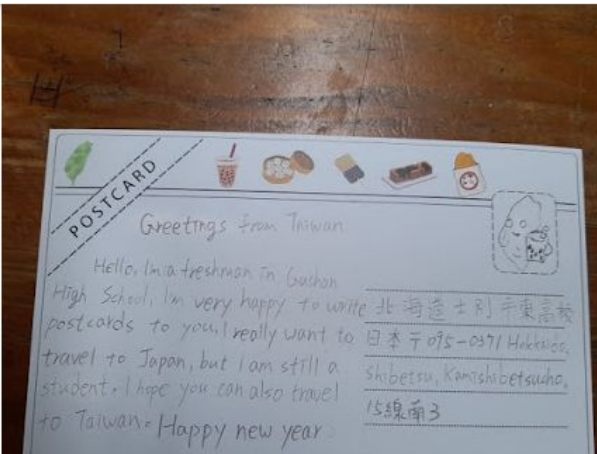 POSTCARD
Greetings from Taiwan
Hello, I'm a freshman in Gushan
High School, I'm very happy to write
postcards to you, I really want to
travel to Japan, but I am still a
student. I hope you can also travel
to Taiwan. Happy new year
北海道士別東高校
日本〒095-0371 Hokkaido,
Shibetsu, Kamishibetsucho,
15線南3